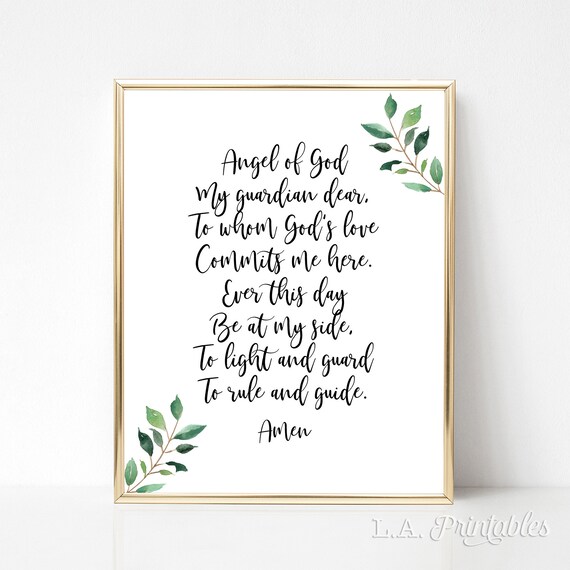 Angel of God
My guardian dear,
To whom God's love
Commits me here.
Ever this day
Be at my side,
To light and guard
To rule and guide.
Amen
L.A. Printables